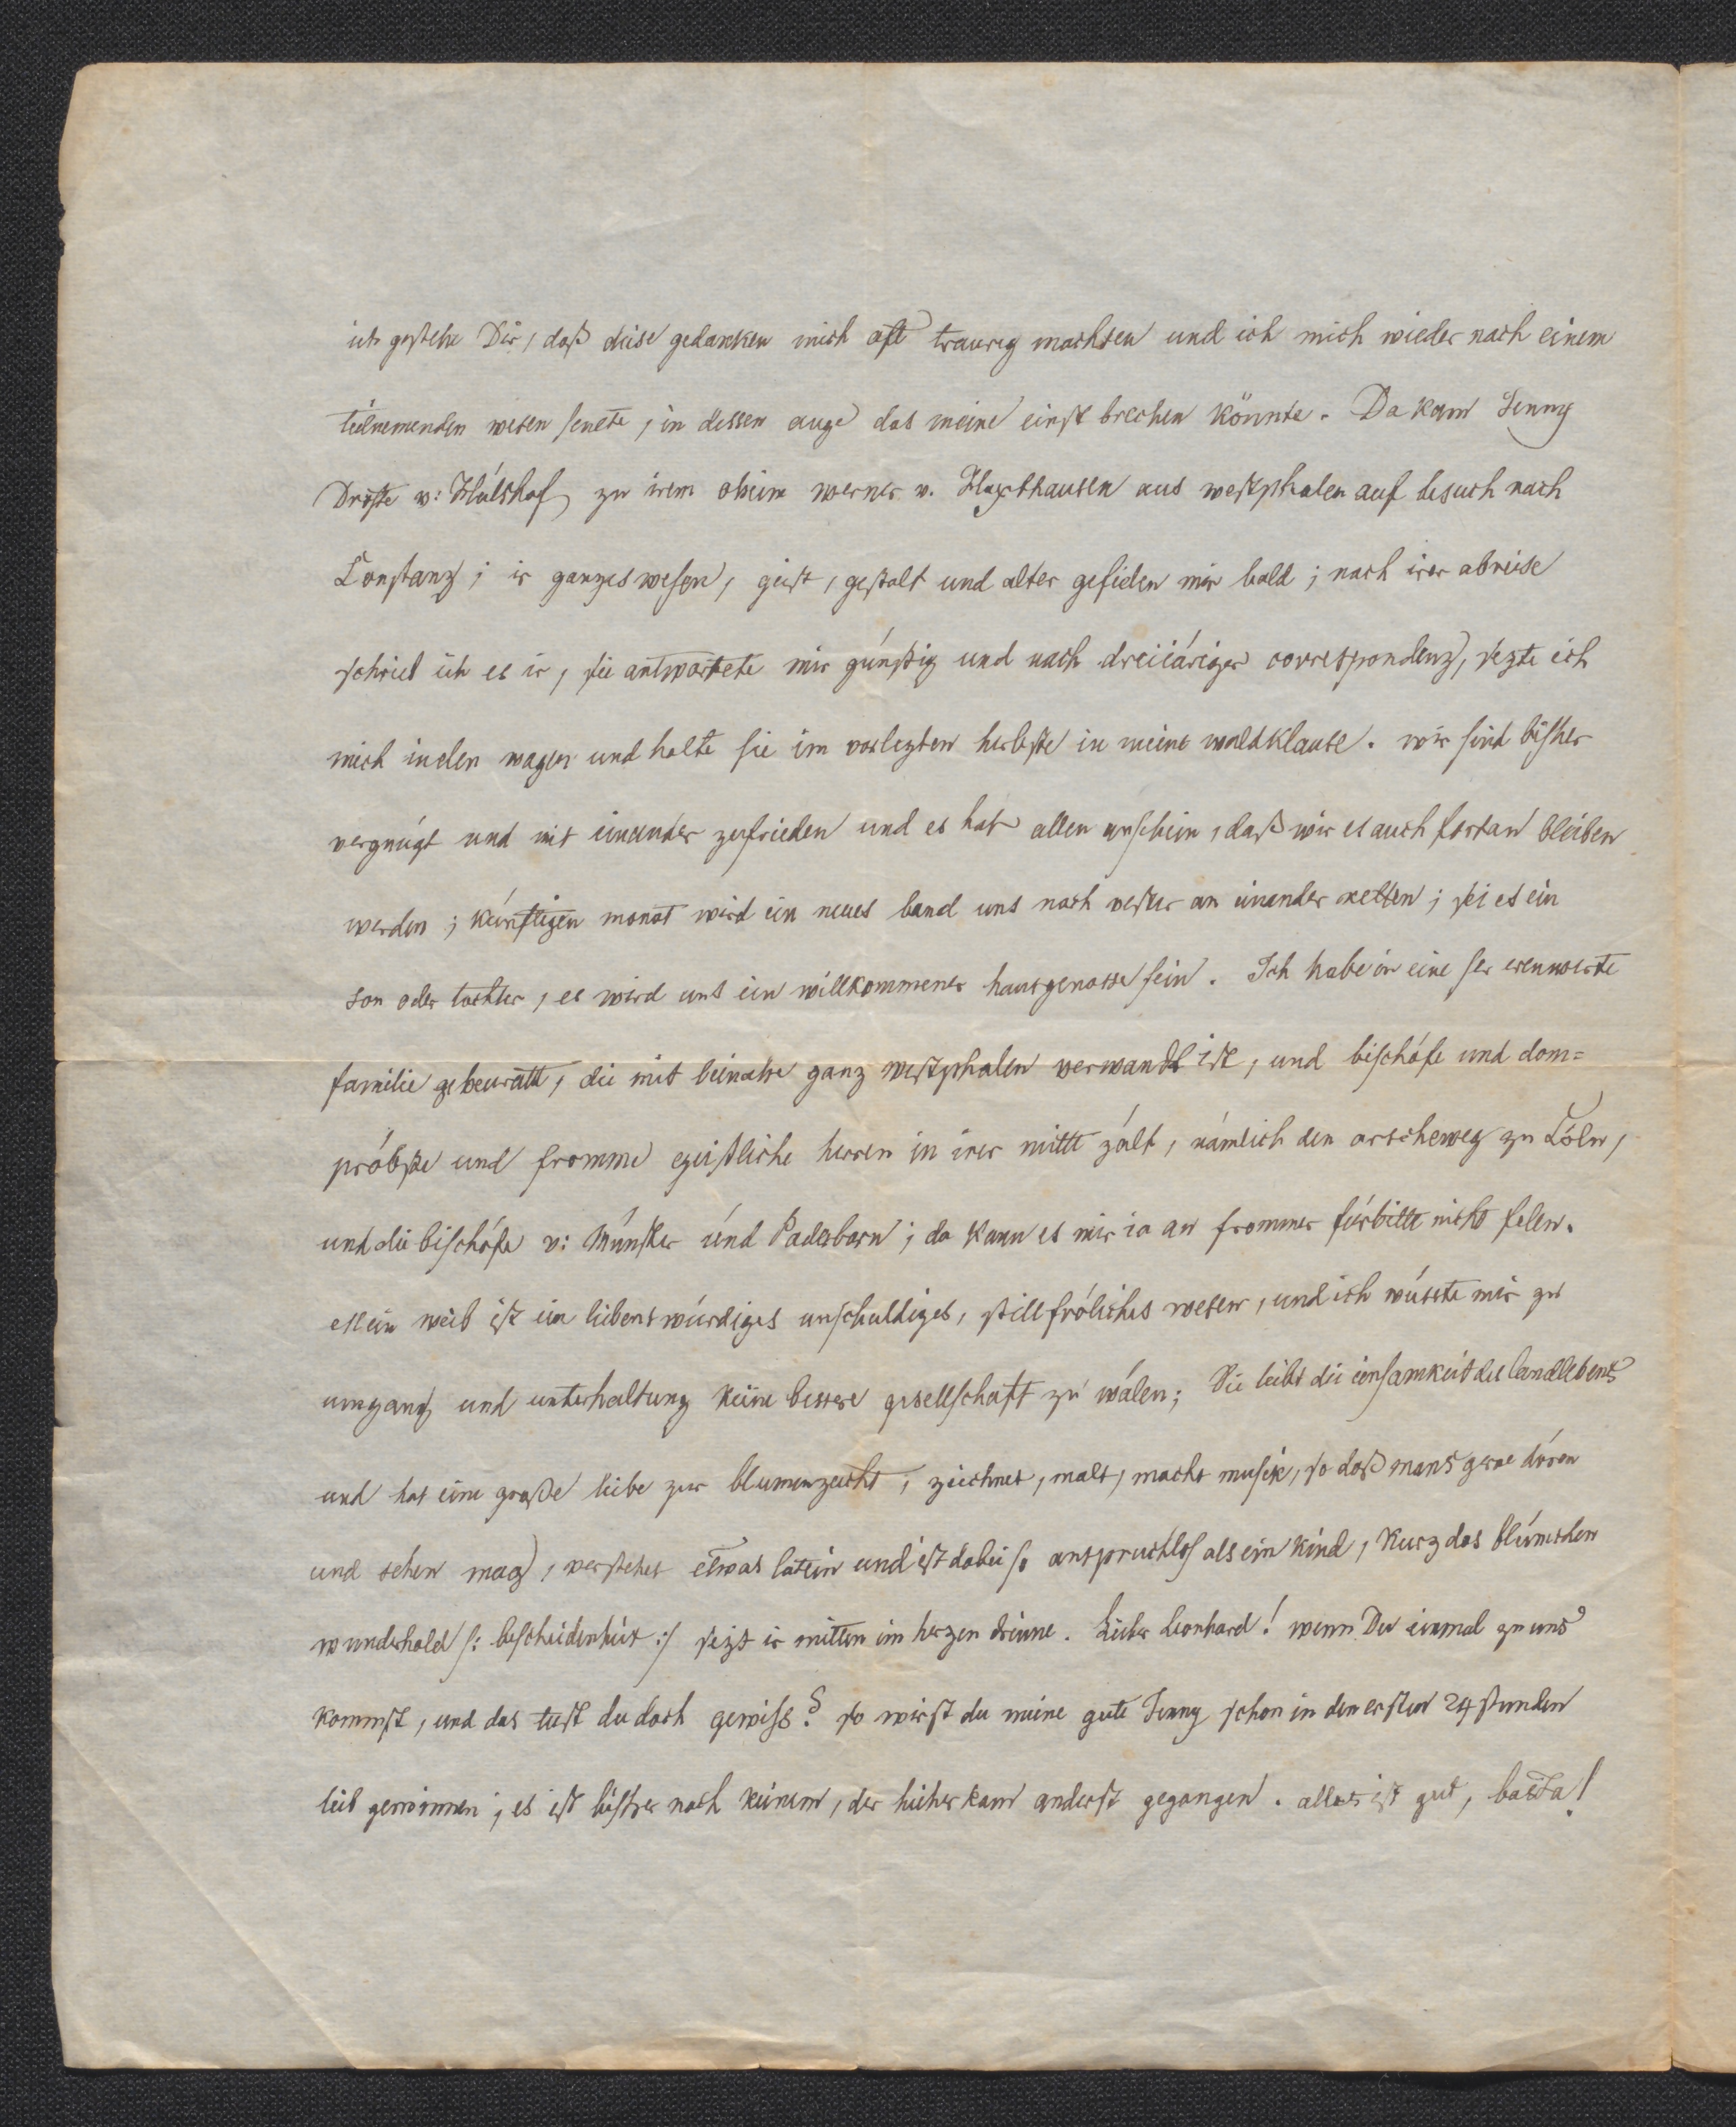 ich gestehe Dir, daß diese gedanken mich oft traurig machten und ich mich wieder nach einem
teilnemenden wesen senete, in dessen auge das meine einst brechen könnte. Da kam Jenny
Droste v: Hülshof, zu irem oheim werner v. Haxthausen aus westphalen auf besuch nach
Constanz; ir ganzes wesen, geist, gestalt und alter gefielen mir bald; nach irer abreise
schrieb ich es ir, sie antwortete mir günstig und nach dreiiäriger correspondenz, sezte ich
mich in den wagen und holte sie im vorlezten herbste in meine waldklause. wir sind bisher
vergnügt und mit einander zufrieden und es hat allen anschein, daß wir es auch fortan bleiben
werden; künftigen monat wird ein neues band uns noch vester an einander ketten; sei es ein
son oder tochter, es wird uns ein willkommener hausgenosse sein. Ich habe in eine ser erenwerte
familie geheuratt, die mit beinahe ganz westphalen verwandt ist, und bischöfe und dom=
pröbste und fromme geistliche herren in irer mitte zält, nämlich den erscheweg zu Cöln,
und die bischöfe v: Münster und Paderborn; da kann es mir ia an frommer fürbitte nicht felen.
Mein weib ist ein liebenswürdiges unschuldiges, stillfröliches wesen, und ich wüsste mir zu
umgang und unterhaltung keine bessere gesellschaft zu wälen; Sie liebt die einsamkeit des landlebens
und hat eine große liebe zur blumenzucht, zeichnet, malt, macht musik, so daß mans gerne hören
und sehen mag, verstehet etwas latein und ist dabei so anspruchlos als ein kind, kurz das blümchen
wunderhold /: bescheidenheit :/ sizt ir mitten im herzen drinne. Lieber Leonhard! wenn Du einmal zu uns
kommst, und das tust du doch gewiss? so wirst du meine gute Jenny schon in den ersten 24 stunden
lieb gewinnen; es ist bisher noch keinem, der hieher kam anderst gegangen. alles ist gut, basta!